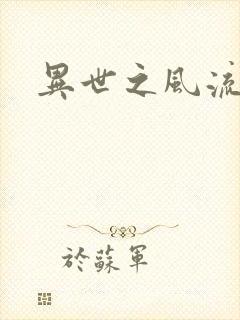 異世之風流
於蘇軍